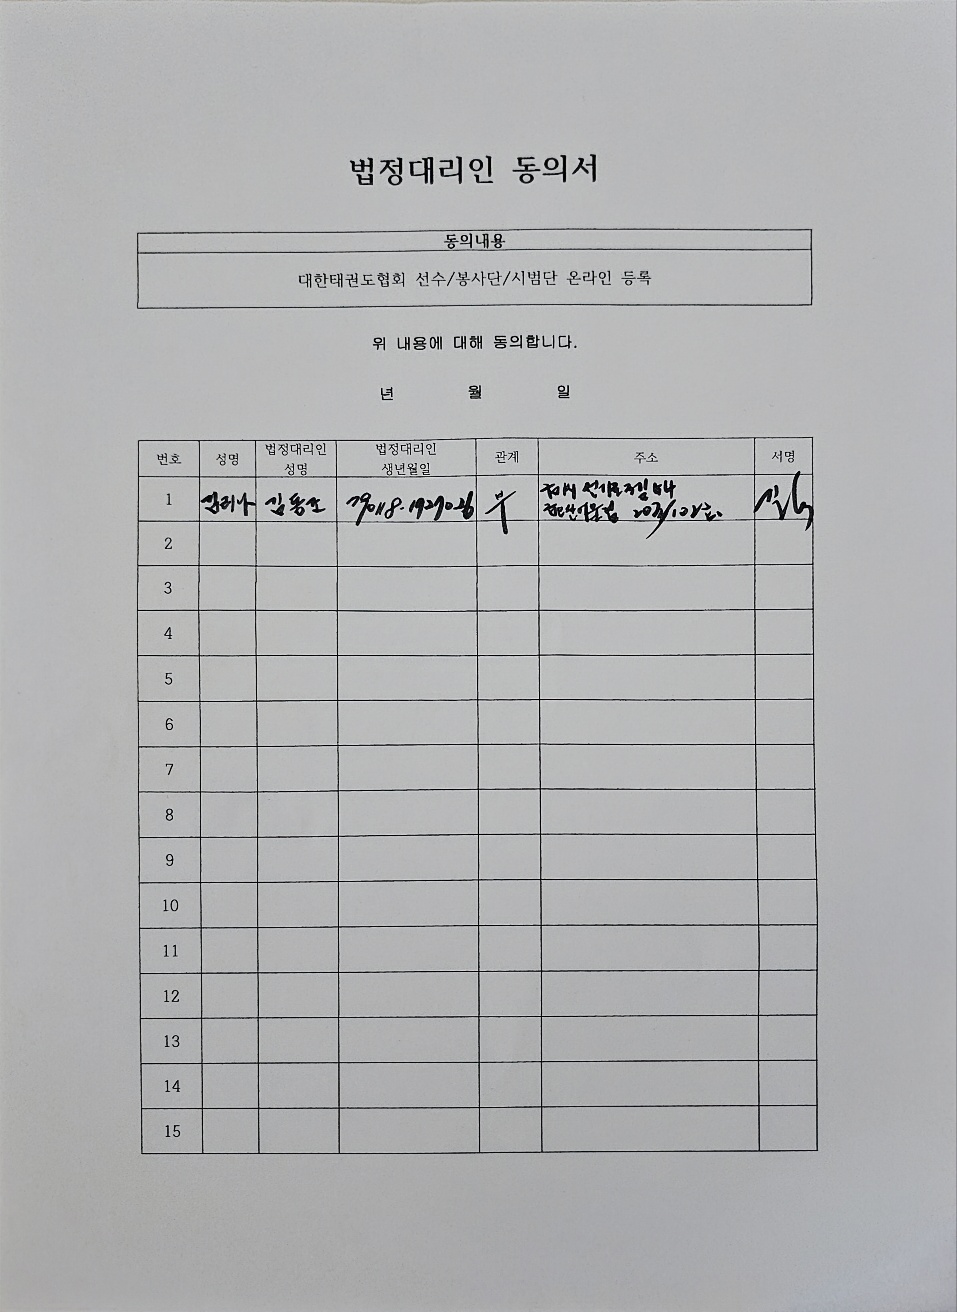 법정대리인 동의서
동의내용
대한태권도협회 선수/봉사단/시범단 온라인 등록
위 내용에 대해 동의합니다.
년 월 일
번호 성명 법정대리인 성명 법정대리인 생년월일 관계 주소 서명
1 부
2
3
4
5
6
7
8
9
10
11
12
13
14
15